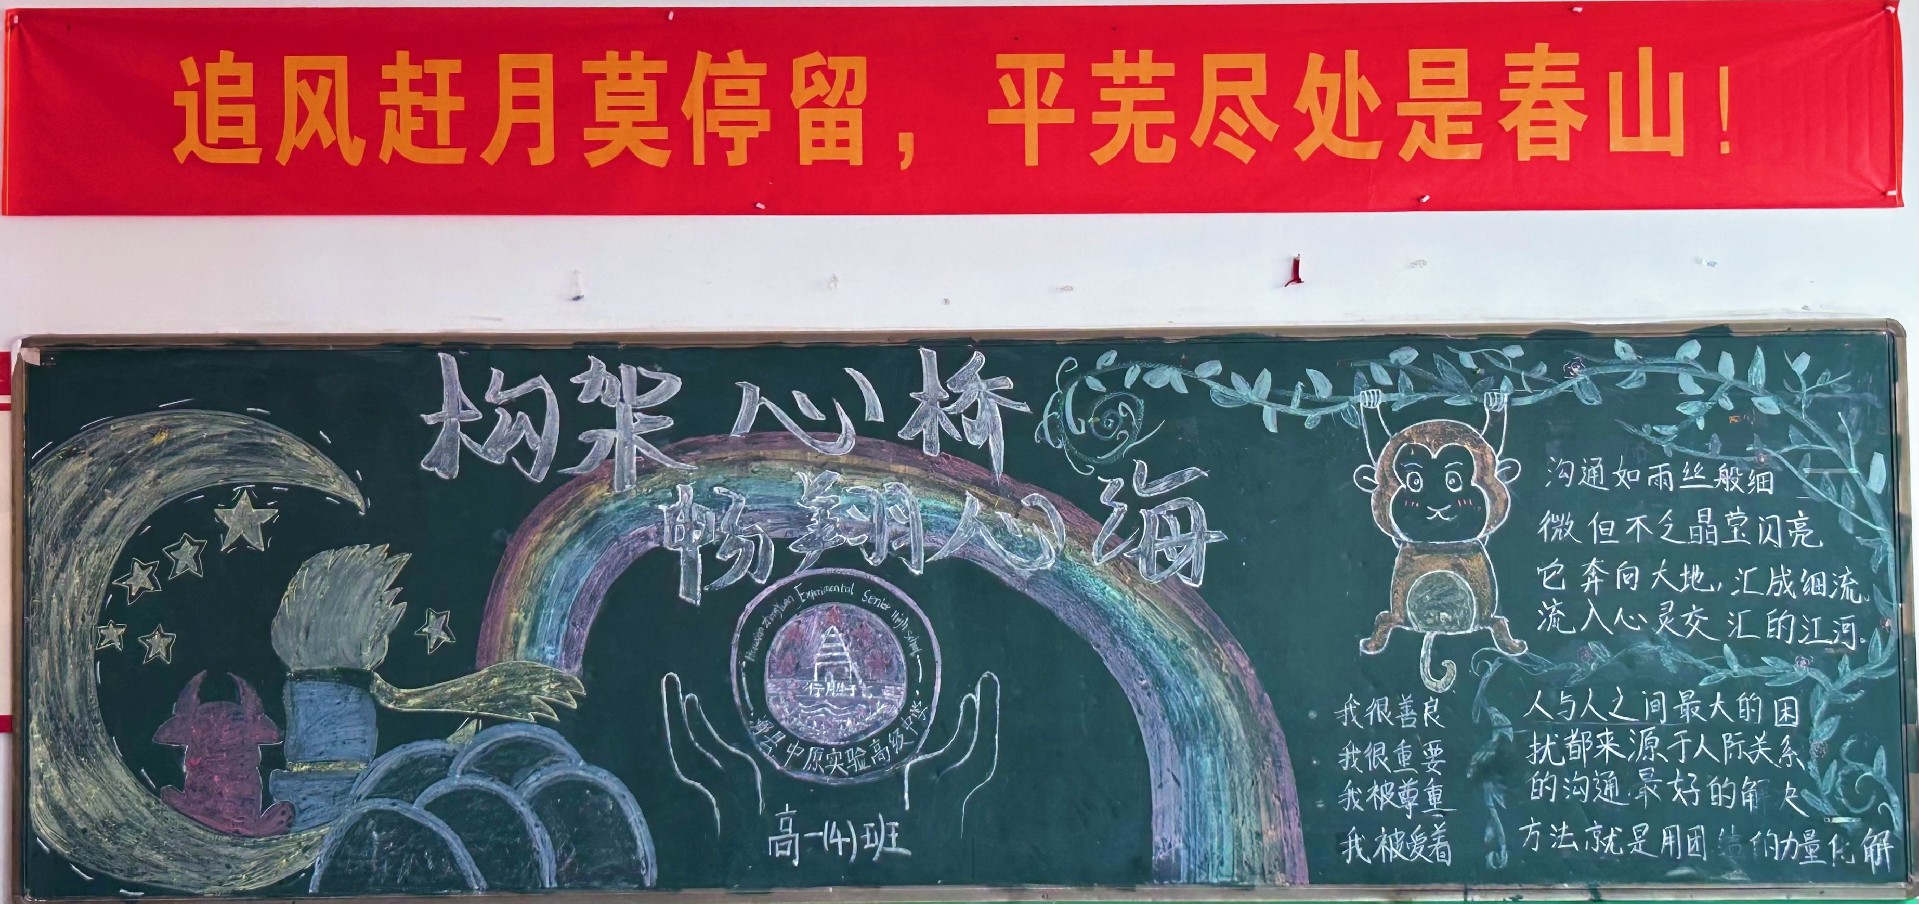 追风赶月莫停留，平芜尽处是春山！
构架心桥
畅翔心海
Experimental Senior High School
行胜于
县中原实验高级中学
高一(4)班
沟通如雨丝般细
微但不乏晶莹闪亮
它奔向大地,汇成细流。
流入心灵交汇的江河.
我很善良
我很重要
我被尊重
我被爱着
人与人之间最大的困
扰都来源于人际关系
的沟通.最好的解
方法就是用团结的力量化解